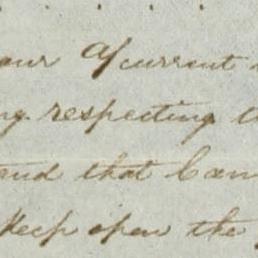 our A/current
ng respecting
and that Can
keep open the